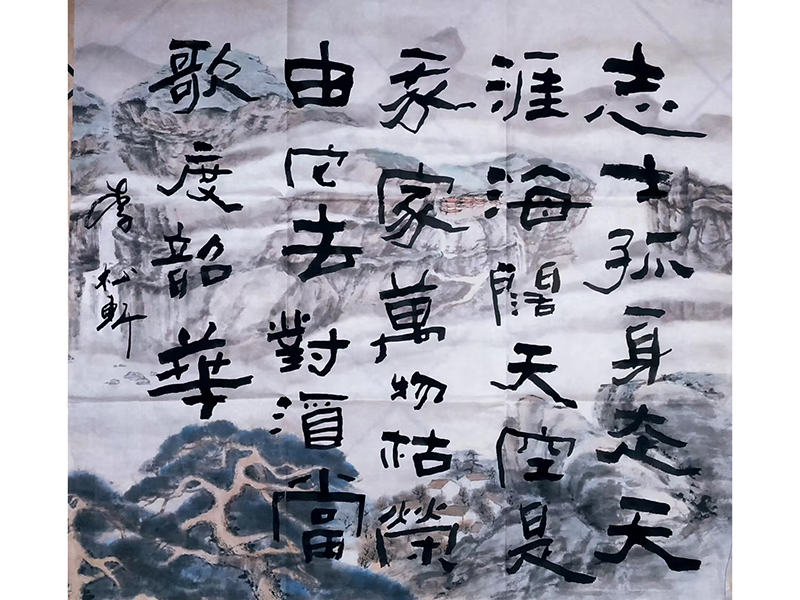 志士孤身走天
涯海闊天空是
我家萬物枯榮
由它去對酒當
歌度韶華
李松軒